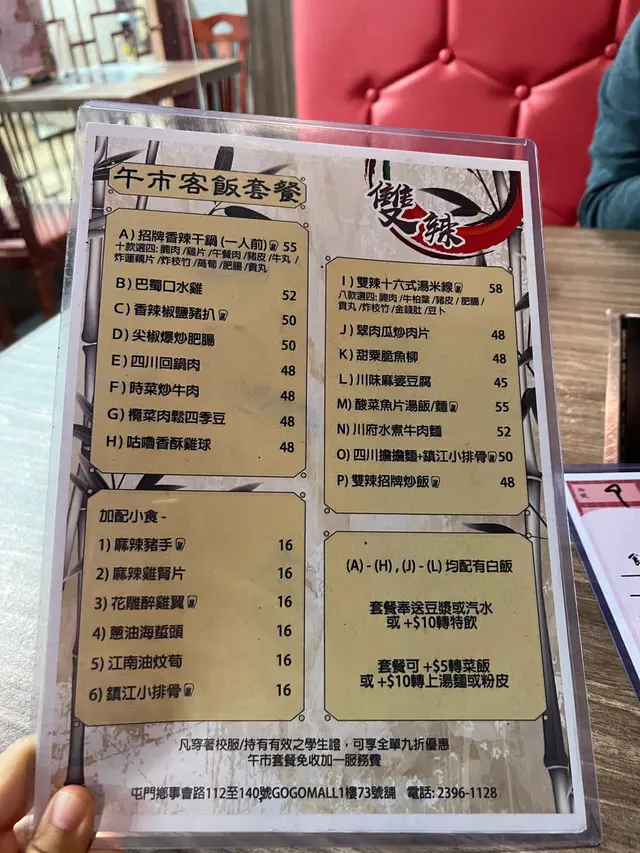 午市客飯套餐
雙辣
A) 招牌香辣干鍋 (一人前) 55
十款選四: 腩肉 /雞片 /午餐肉 /豬皮 /牛丸 /
炸蓮藕片 /炸枝竹 /萵筍 /肥腸 /貢丸
B) 巴蜀口水雞 52
C) 香辣椒鹽豬扒 50
D) 尖椒爆炒肥腸 50
E) 四川回鍋肉 48
F) 時菜炒牛肉 48
G) 欖菜肉鬆四季豆 48
H) 咕嚕香酥雞球 48
I) 雙辣十六式湯米線 58
八款選四: 腩肉 /牛柏葉 /豬皮 /肥腸 /
貢丸 /炸枝竹 /金錢肚 /豆卜
J) 翠肉瓜炒肉片 48
K) 甜粟脆魚柳 48
L) 川味麻婆豆腐 45
M) 酸菜魚片湯飯/麵 55
N) 川府水煮牛肉麵 52
O) 四川擔擔麵+鎮江小排骨 50
P) 雙辣招牌炒飯 48
加配小食 -
1) 麻辣豬手 16
2) 麻辣雞腎片 16
3) 花雕醉雞翼 16
4) 蔥油海蜇頭 16
5) 江南油炆筍 16
6) 鎮江小排骨 16
(A) - (H) , (J) - (L) 均配有白飯
套餐奉送豆漿或汽水
或 +$10轉特飲
套餐可 +$5轉菜飯
或 +$10轉上湯麵或粉皮
凡穿著校服/持有有效之學生證，可享全單九折優惠
午市套餐免收加一服務費
屯門鄉事會路112至140號GOGOMALL1樓73號舖 電話: 2396-1128